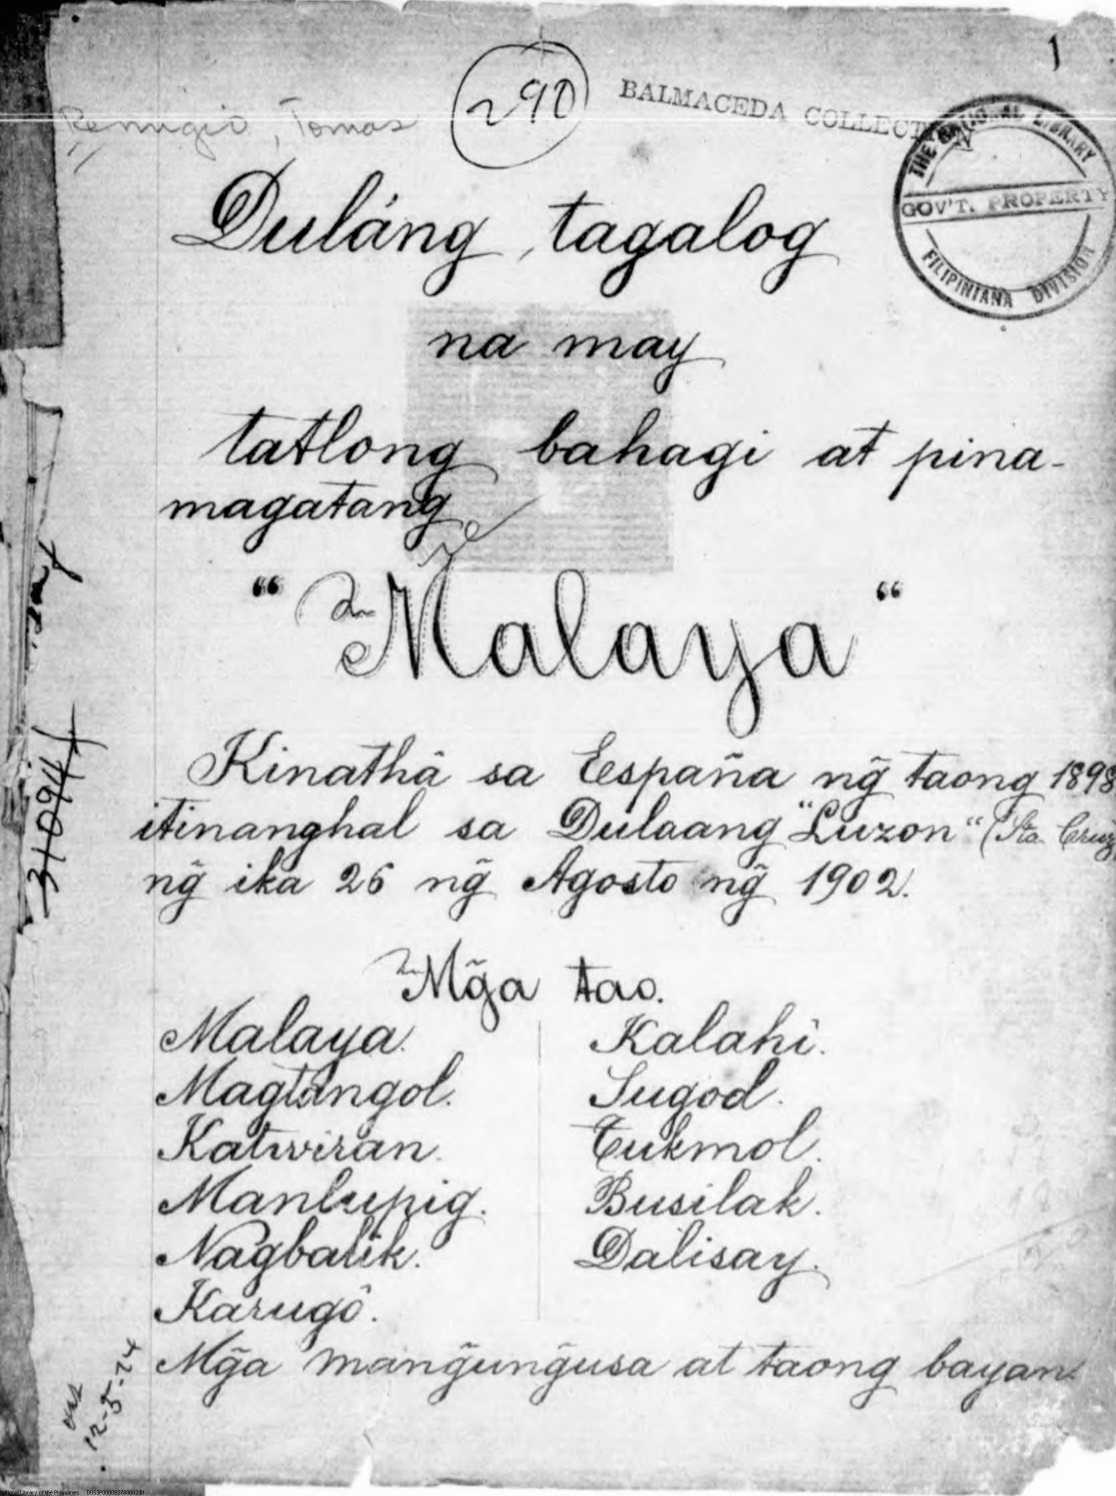 1
290
BALMACEDA COLLECTION
Remigio, Tomas
THE NATIONAL LIBRARY
GOV'T. PROPERTY
FILIPINIANA DIVISION
Duláng tagalog
na may
tatlong bahagi at pina-
magatang
"Malaya"
Kinathâ sa España ng̃ taong 1898
itinanghal sa Dulaang "Luzon" (Sta. Cruz
ng̃ ika 26 ng̃ Agosto ng̃ 1902.
Mg̃a tao.
Malaya.
Magtangol.
Katwiran.
Manlupig.
Nagbalik.
Karugô.
Kalahi.
Sugod.
Tukmol.
Busilak.
Dalisay.
Mg̃a mang̃ung̃usa at taong bayan.
31094
12-5-24